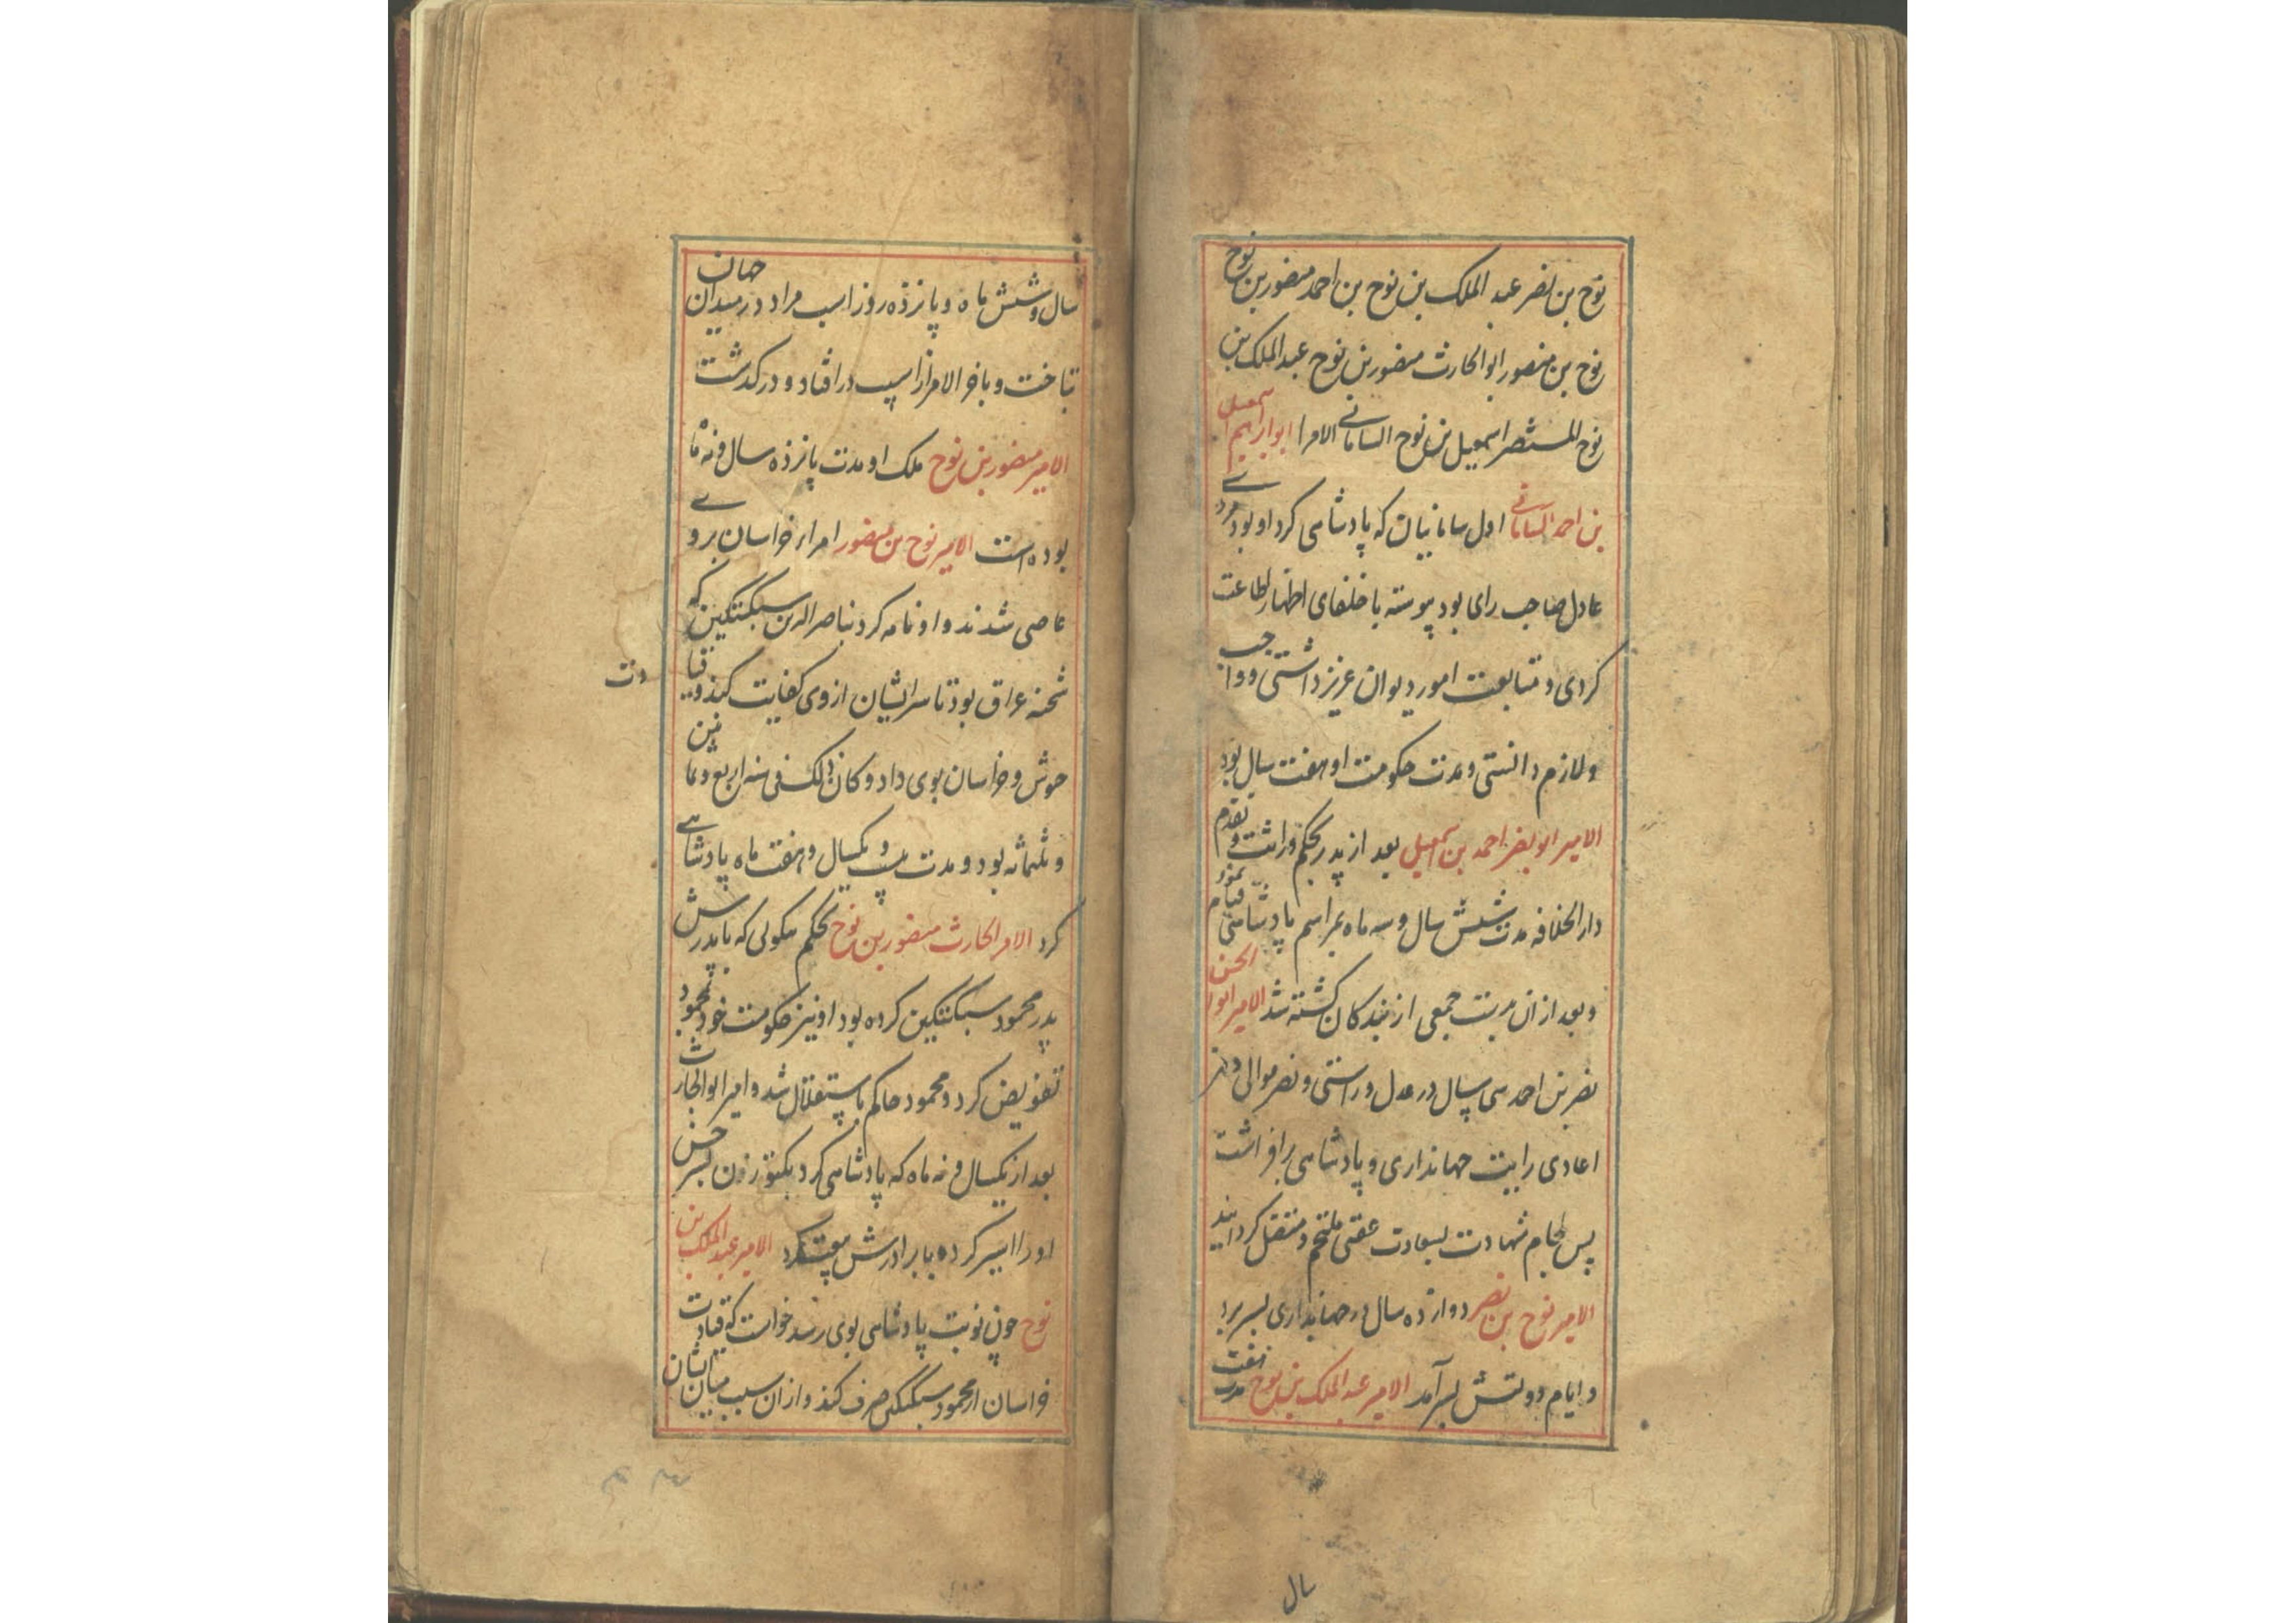 نوح بن نصر عبد الملک بن نوح بن احمد منصور بن نوح
نوح بن منصور ابو الحارث منصور بن نوح عبد الملک بن
نوح المستنصر اسمعیل بن نوح السامانی الامرا ابو ابراهیم اسمعیل
بن احمد السامانی اول سامانیان که پادشاهی کرد او بود مردی
عادل صاحب رای بود پیوسته با خلفای اظهار اطاعت
کردی و متابعت امور دیوان عزیز داشتی و واجب
و لازم دانستی و مدت حکومت او هفت سال بود
الامیر ابو نصر احمد بن اسمعیل بعد از پدر بحکم وراثت و تقدم
دار الخلافه مدت شش سال و سه ماه بمراسم پادشاهی قیام نمود
و بعد از ان بدست جمعی از بندکان کشته شد الامیر ابو الحسن
نصر بن احمد سی سال در عدل و راستی و نصر موالی و
اعادی رایت جهانداری و پادشاهی برافراشت
پس بجام شهادت بسعادت عقبی ملتحم و منتقل کردانید
الامیر نوح بن نصر دوازده سال در جهانداری بسر برد
و ایام دولتش بسر آمد الامیر عبد الملک بن نوح مدت هفت
سال
سال و شش ماه و پانزده روز اسب مراد در میدان جهان
بتاخت و باخر الامر از اسب در افتاد و درکذشت
الامیر منصور بن نوح ملک او مدت پانزده سال و نه ماه
بوده است الامیر نوح بن منصور امراء خراسان بر وی
عاصی شدند و او نامه کرد بناصر الدین سبکتکین که
شحنه عراق بود تا سر ایشان از وی کفایت کند و قیا
دت
جوش و خراسان بوی داد و کان ذلک فی سنه اربع و ثمانین
و ثلثمائه بود و مدت بیست و یکسال و هفت ماه پادشاهی
کرد الامر الحارث منصور بن نوح بحکم نیکویی که با پدرش
پدر محمود سبکتکین کرده بود او نیز حکومت خود بمحمود
تفویض کرد و محمود حاکم باستقلال شد و امیر ابو الحارث
بعد از یکسال و نه ماه که پادشاهی کرد بکتوزون بسرخس
او را اسیر کرده با برادرش بیعت کرد الامیر عبد الملک بن
نوح چون نوبت پادشاهی بوی رسد خواست که قیادت
خراسان از محمود سبکتکین صرف کند و از ان سبب میان ایشان